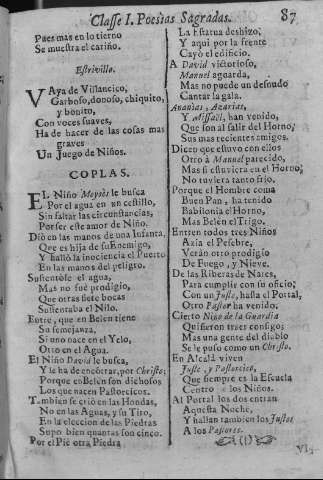 Classe I. Poesias Sagradas. 87
Pues mas en lo tierno
Se muestra el cariño.
Estrivillo.
VAya de Villancico,
Garboso, donoso, chiquito,
y bonito,
Con voces suaves,
Ha de hacer de las cosas mas
graves
Un Juego de Niños.
COPLAS.
EL Niño Moysès le busca
Por el agua en un cestillo,
Sin faltar las circunstancias,
Por ser este amor de Niño.
Diò en las manos de una Infanta,
Que es hija de su Enemigo,
Y hallò la inociencia el Puerto
En las manos del peligro.
Sustentòse el agua,
Mas no fuè prodigio,
Que otras siete bocas
Sustentaba el Nilo.
Entre, que en Belen tiene
Su semejanza,
Si uno nace en el Yelo,
Otto en el Agua.
El Niño David le busca,
Y le ha de encontrar, por Christo;
Porque en Belèn son dichosos
Los que nacen Pastorcicos.
Tambien se criò en las Hondas,
No en las Aguas, y su Tiro,
En la eleccion de las Piedras
Supo bien quantas son cinco.
Por el Pie otra Piedra
La Estatua deshizo;
Y aqui por la frente
Cayò el edificio.
A David victorioso,
Manuel aguarda,
Mas no puede un desnudo
Cantar la gala.
Ananias, Azarias,
Y Missaèl, han venido,
Que son al salir del Horno,
Sus mas recientes amigos.
Dicen que estuvo con ellos
Otro à Manuel parecido,
Mas si estuviera en el Horno;
No tuviera tanto frio.
Porque el Hombre coma
Buen Pan, ha tenido
Babilonia el Horno,
Mas Belèn el Trigo.
Entren todos tres Niños
Azia el Pesebre,
Veràn otro prodigio
De Fuego, y Nieve.
De las Riberas de Nares,
Para cumplir con su oficio;
Con un Justo, halla el Portal,
Otro Pastor ha venido;
Cierto Niño de la Guardia
Quisieron traer consigo;
Mas una gente del diablo
Se le puso como un Christo.
En Alcalà viven
Justo, y Pastorcico,
Que siempre es la Escuela
Centro de los Niños.
Al Portal los dos entran
Aquesta Noche,
Y hallan tambien los Justos
A los Pastores.